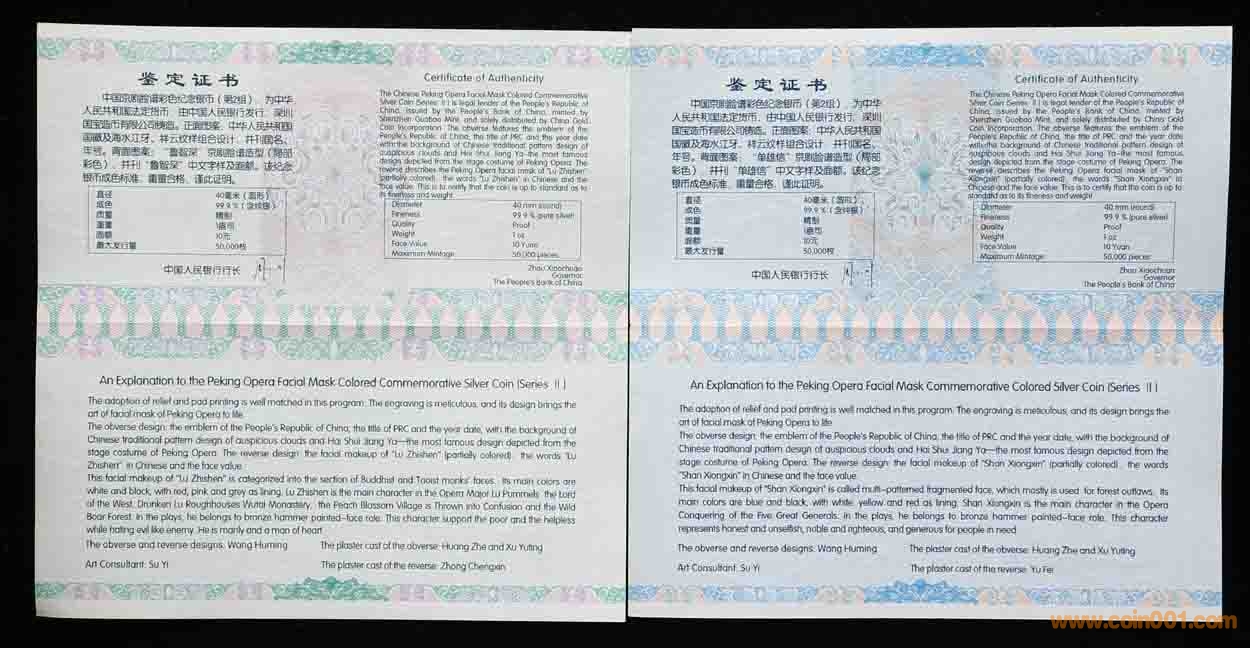 鉴定证书
中国京剧脸谱彩色纪念银币（第2组），为中华
人民共和国法定货币，由中国人民银行发行，深圳
国宝造币有限公司铸造。正面图案：中华人民共和国
国徽及海水江牙、祥云纹样组合设计，并刊国名、
年号。背面图案："鲁智深"京剧脸谱造型（局部
彩色），并刊"鲁智深"中文字样及面额。该纪念
银币成色标准、重量合格、谨此证明。
直径 40毫米（圆形）
成色 99.9％（含纯银）
质量 精制
重量 1盎司
面额 10元
最大发行量 50,000枚
中国人民银行行长
Certificate of Authenticity
The Chinese Peking Opera Facial Mask Colored Commemorative
Silver Coin (Series II) is legal tender of the People's Republic of
China, issued by the People's Bank of China, minted by
Shenzhen Guobao Mint, and solely distributed by China Gold
Coin Incorporation. The obverse features the emblem of the
People's Republic of China, the title of PRC and the year date
with the background of Chinese traditional pattern design of
auspicious clouds and Hai Shui Jiang Ya-the most famous
design depicted from the stage costume of Peking Opera. The
reverse describes the Peking Opera facial mask of "Lu Zhishen"
(partially colored), the words "Lu Zhishen" in Chinese and the
face value. This is to certify that the coin is up to standard as to
its fineness and weight.
Diameter 40 mm (round)
Fineness 99.9 % (pure silver)
Quality Proof
Weight 1 oz
Face Value 10 Yuan
Maximum Mintage 50,000 pieces
Zhou Xiaochuan
Governor
The People's Bank of China
An Explanation to the Peking Opera Facial Mask Colored Commemorative Silver Coin (Series II)
The adoption of relief and pad printing is well matched in this program. The engraving is meticulous, and its design brings the
art of facial mask of Peking Opera to life.
The obverse design: the emblem of the People's Republic of China, the title of PRC and the year date, with the background of
Chinese traditional pattern design of auspicious clouds and Hai Shui Jiang Ya—the most famous design depicted from the
stage costume of Peking Opera. The reverse design: the facial makeup of "Lu Zhishen" (partially colored), the words "Lu
Zhishen" in Chinese and the face value.
This facial makeup of "Lu Zhishen" is categorized into the section of Buddhist and Taoist monks' faces. Its main colors are
white and black, with red, pink and grey as lining. Lu Zhishen is the main character in the Opera Major Lu Pummels the Lord
of the West, Drunken Lu Roughhouses Wutai Monastery, the Peach Blossom Village is Thrown into Confusion and the Wild
Boar Forest. In the plays, he belongs to bronze hammer painted-face role. This character support the poor and the helpless
while hating evil like enemy. He is manly and a man of heart.
The obverse and reverse designs: Wang Huming The plaster cast of the obverse: Huang Zhe and Xu Yuting
Art Consultant: Su Yi The plaster cast of the reverse: Zhong Chengxin
鉴定证书
中国京剧脸谱彩色纪念银币（第2组），为中华
人民共和国法定货币，由中国人民银行发行，深圳
国宝造币有限公司铸造。正面图案：中华人民共和国
国徽及海水江牙、祥云纹样组合设计，并刊国名、
年号。背面图案："单雄信"京剧脸谱造型（局部
彩色），并刊"单雄信"中文字样及面额。该纪念
银币成色标准、重量合格、谨此证明。
直径 40毫米（圆形）
成色 99.9％（含纯银）
质量 精制
重量 1盎司
面额 10元
最大发行量 50,000枚
中国人民银行行长
Certificate of Authenticity
The Chinese Peking Opera Facial Mask Colored Commemorative
Silver Coin (Series II) is legal tender of the People's Republic of
China, issued by the People's Bank of China, minted by
Shenzhen Guobao Mint, and solely distributed by China Gold
Coin Incorporation. The obverse features the emblem of the
People's Republic of China, the title of PRC and the year date
with the background of Chinese traditional pattern design of
auspicious clouds and Hai Shui Jiang Ya-the most famous
design depicted from the stage costume of Peking Opera. The
reverse describes the Peking Opera facial mask of "Shan
Xiongxin" (partially colored), the words "Shan Xiongxin" in
Chinese and the face value. This is to certify that the coin is up to
standard as to its fineness and weight.
Diameter 40 mm (round)
Fineness 99.9 % (pure silver)
Quality Proof
Weight 1 oz
Face Value 10 Yuan
Maximum Mintage 50,000 pieces
Zhou Xiaochuan
Governor
The People's Bank of China
An Explanation to the Peking Opera Facial Mask Commemorative Colored Silver Coin (Series II)
The adoption of relief and pad printing is well matched in this program. The engraving is meticulous, and its design brings the
art of facial mask of Peking Opera to life.
The obverse design: the emblem of the People's Republic of China, the title of PRC and the year date, with the background of
Chinese traditional pattern design of auspicious clouds and Hai Shui Jiang Ya—the most famous design depicted from the
stage costume of Peking Opera. The reverse design: the facial makeup of "Shan Xiongxin" (partially colored), the words
"Shan Xiongxin" in Chinese and the face value.
This facial makeup of "Shan Xiongxin" is called multi-patterned fragmented face, which mostly is used for forest outlaws. Its
main colors are blue and black, with white, yellow and red as lining. Shan Xiongxin is the main character in the Opera
Conquering of the Five Great Generals. In the plays, he belongs to bronze hammer painted-face role. This character
represents honest and unselfish, noble and righteous, and generous for people in need.
The obverse and reverse designs: Wang Huming The plaster cast of the obverse: Huang Zhe and Xu Yuting
Art Consultant: Su Yi The plaster cast of the reverse: Yu Fei
www.coin001.com